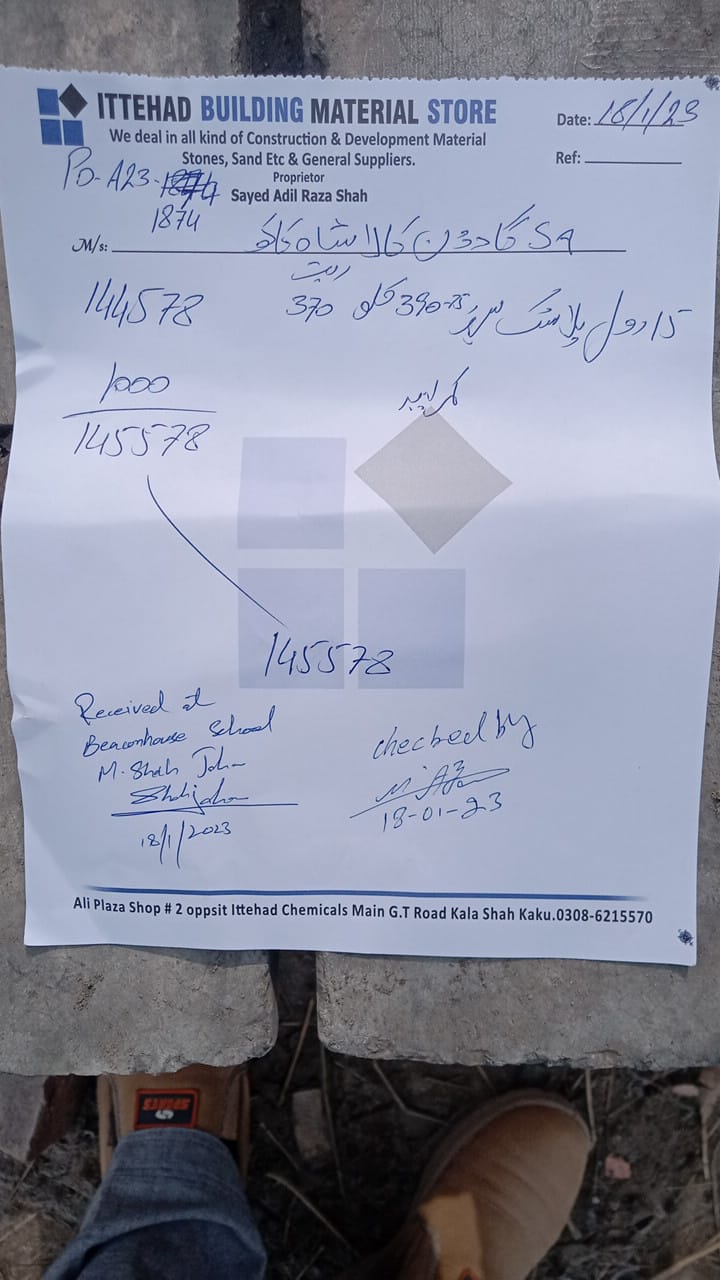 ITTEHAD BUILDING MATERIAL STORE
Date: 18/1/23
We deal in all kind of Construction & Development Material
Stones, Sand Etc & General Suppliers.
Ref:
Proprietor
Sayed Adil Raza Shah
PO-A23-
1874
M/s: SA گارڈن کالا شاہ کاکو
ریٹ
15 رول پلاسٹک 390-75 کلو 370
144578
کرایہ
1000
145578
145578
Received at
Beaconhouse School
M. Shah Jahan
Shahjahan
18/1/2023
checked by
18-01-23
Ali Plaza Shop # 2 oppsit Ittehad Chemicals Main G.T Road Kala Shah Kaku.0308-6215570
SPORTS